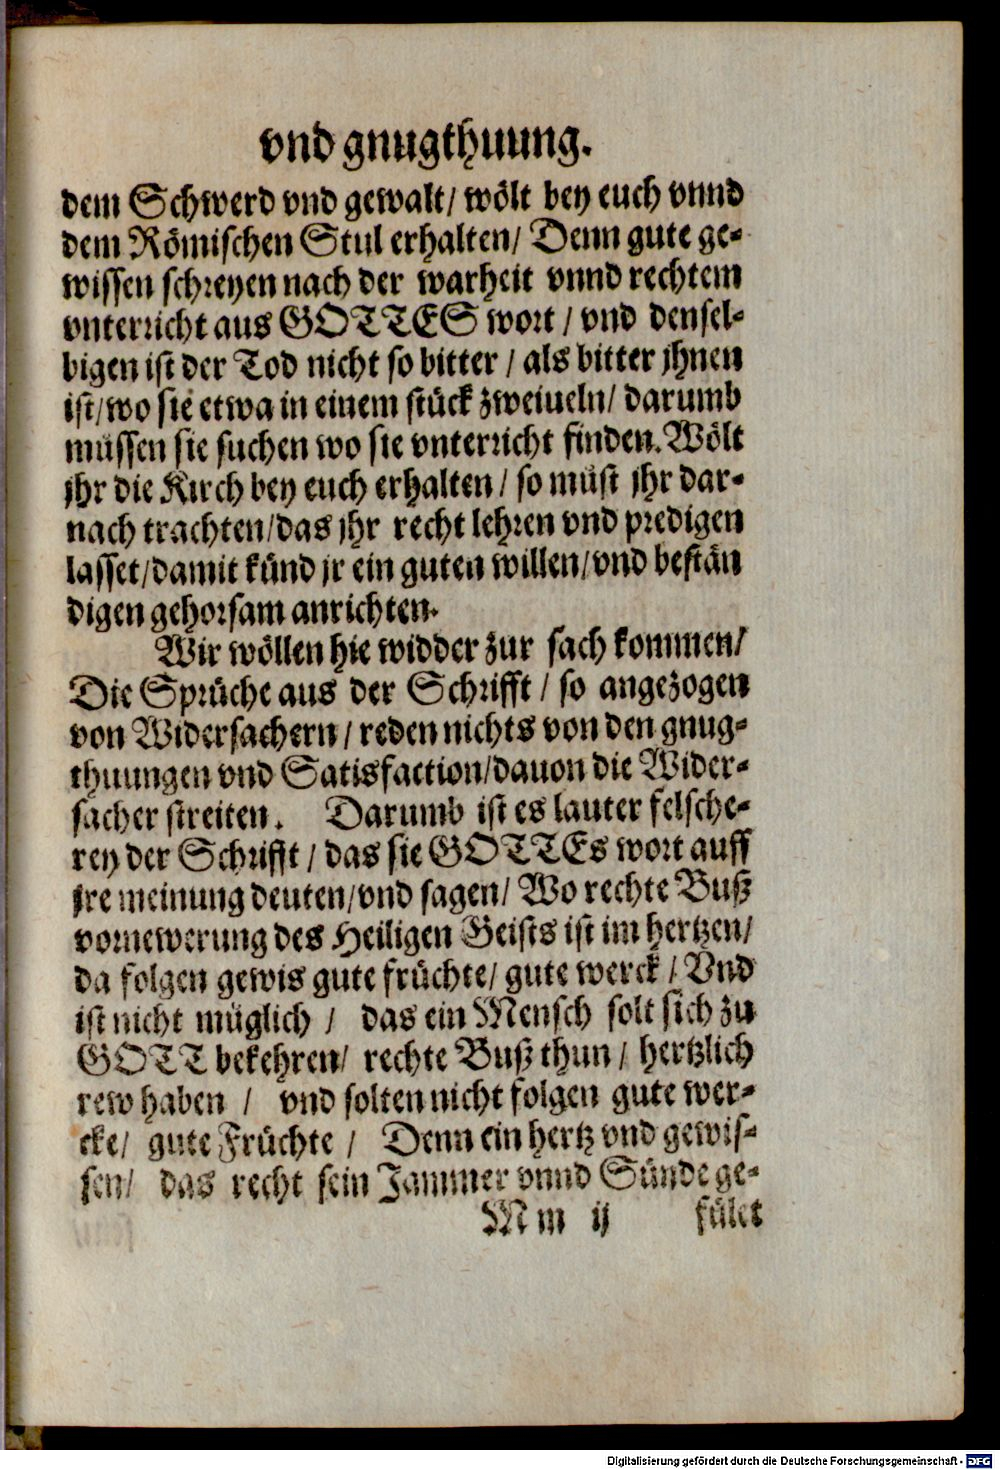 vnd gnugthuung.
dem Schwerd vnd gewalt/ wölt bey euch vnnd
dem Römischen Stul erhalten/ Denn gute ge-
wissen schreyen nach der warheit vnnd rechtem
vnterricht aus GOTTES wort / vnd densel-
bigen ist der Tod nicht so bitter / als bitter jhnen
ist/wo sie etwa in einem stück zweiueln/ darumb
müssen sie suchen wo sie vnterricht finden. Wölt
jhr die Kirch bey euch erhalten / so müst jhr dar-
nach trachten/das jhr recht lehren vnd predigen
lasset/damit künd jr ein guten willen/vnd bestän
digen gehorsam anrichten.
Wir wöllen hie widder zur sach kommen/
Die Sprüche aus der Schrifft / so angezogen
von Widersachern / reden nichts von den gnug-
thuungen vnd Satisfaction/dauon die Wider-
sacher streiten. Darumb ist es lauter felsche-
rey der Schrifft / das sie GOTTEs wort auff
jre meinung deuten/vnd sagen/ Wo rechte Buß
vornewerung des Heiligen Geists ist im hertzen/
da folgen gewis gute früchte/ gute werck / Vnd
ist nicht müglich / das ein Mensch solt sich zu
GOTT bekehren/ rechte Buß thun / hertzlich
rew haben / vnd solten nicht folgen gute wer-
cke/ gute Früchte / Denn ein hertz vnd gewis-
sen/ das recht sein Jammer vnnd Sünde ge-
M m ij fület
Digitalisierung gefördert durch die Deutsche Forschungsgemeinschaft - DFG